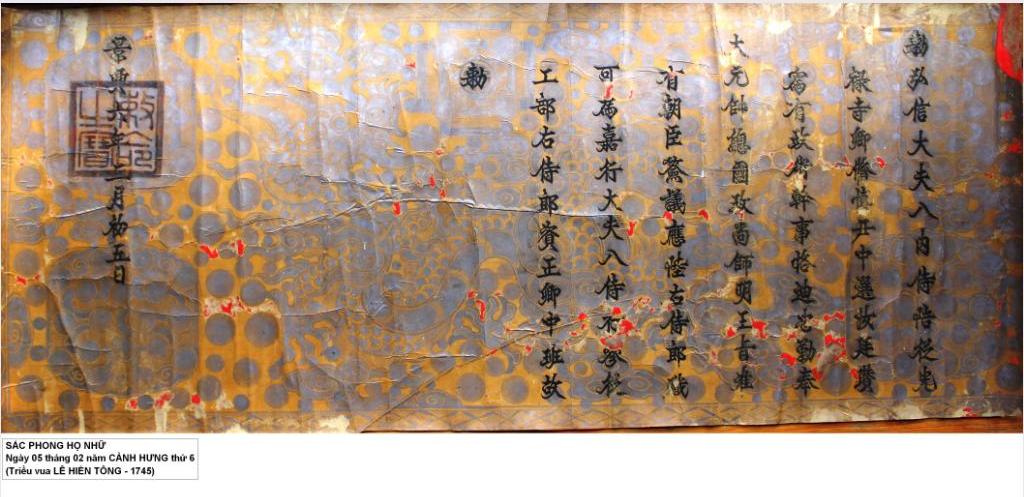 勅弘信大夫入内侍陪從光
祿寺卿脩慎中選故廷瓚
爲有政務幹事恪迪忠勤奉
大元帥總國政尚師明王旨准
有朝臣僉議應陞右侍郎職
可爲嘉行大夫入侍
工部右侍郎資正卿中班故
勅
景興六年二月初五日
敕命之寶
SẮC PHONG HỌ NHỮ
Ngày 05 tháng 02 năm CẢNH HƯNG thứ 6
(Triều vua LÊ HIỂN TÔNG - 1745)